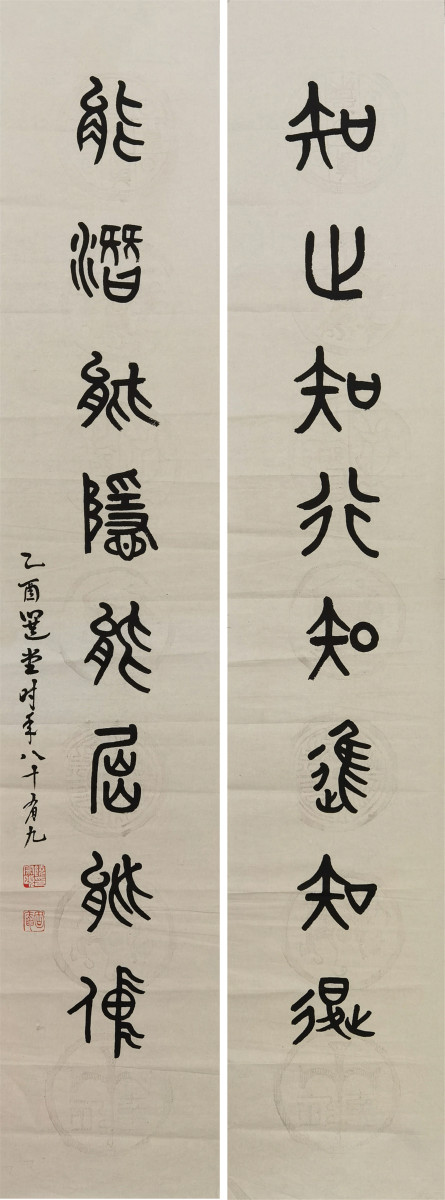 知止知行知進知退
能潛能隱能屈能伸
乙酉選堂時年八十有九